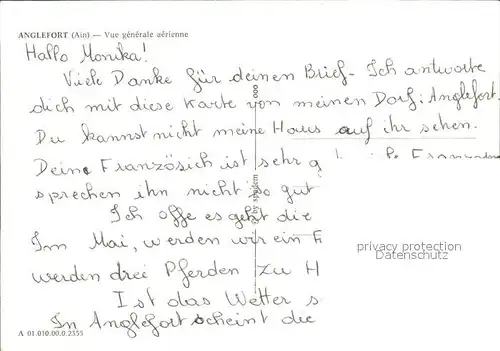 ANGLEFORT (Ain) — Vue générale aérienne
Hallo Monika!
Viele Danke für deinen Brief- Ich antworte
dich mit diese Karte von meinen Dorf: Anglefort.
Du kannst nicht meine Haus auf ihr sehen.
Deine Französich ist sehr g
sprechen ihn nicht so gut
Ich offe es geht die
Im Mai, werden wir ein F
werden drei Pferden zu H
Ist das Wetter s
In Anglefort scheint die
by spadem
privacy protection
Datenschutz
A 01.010.00.0.2355